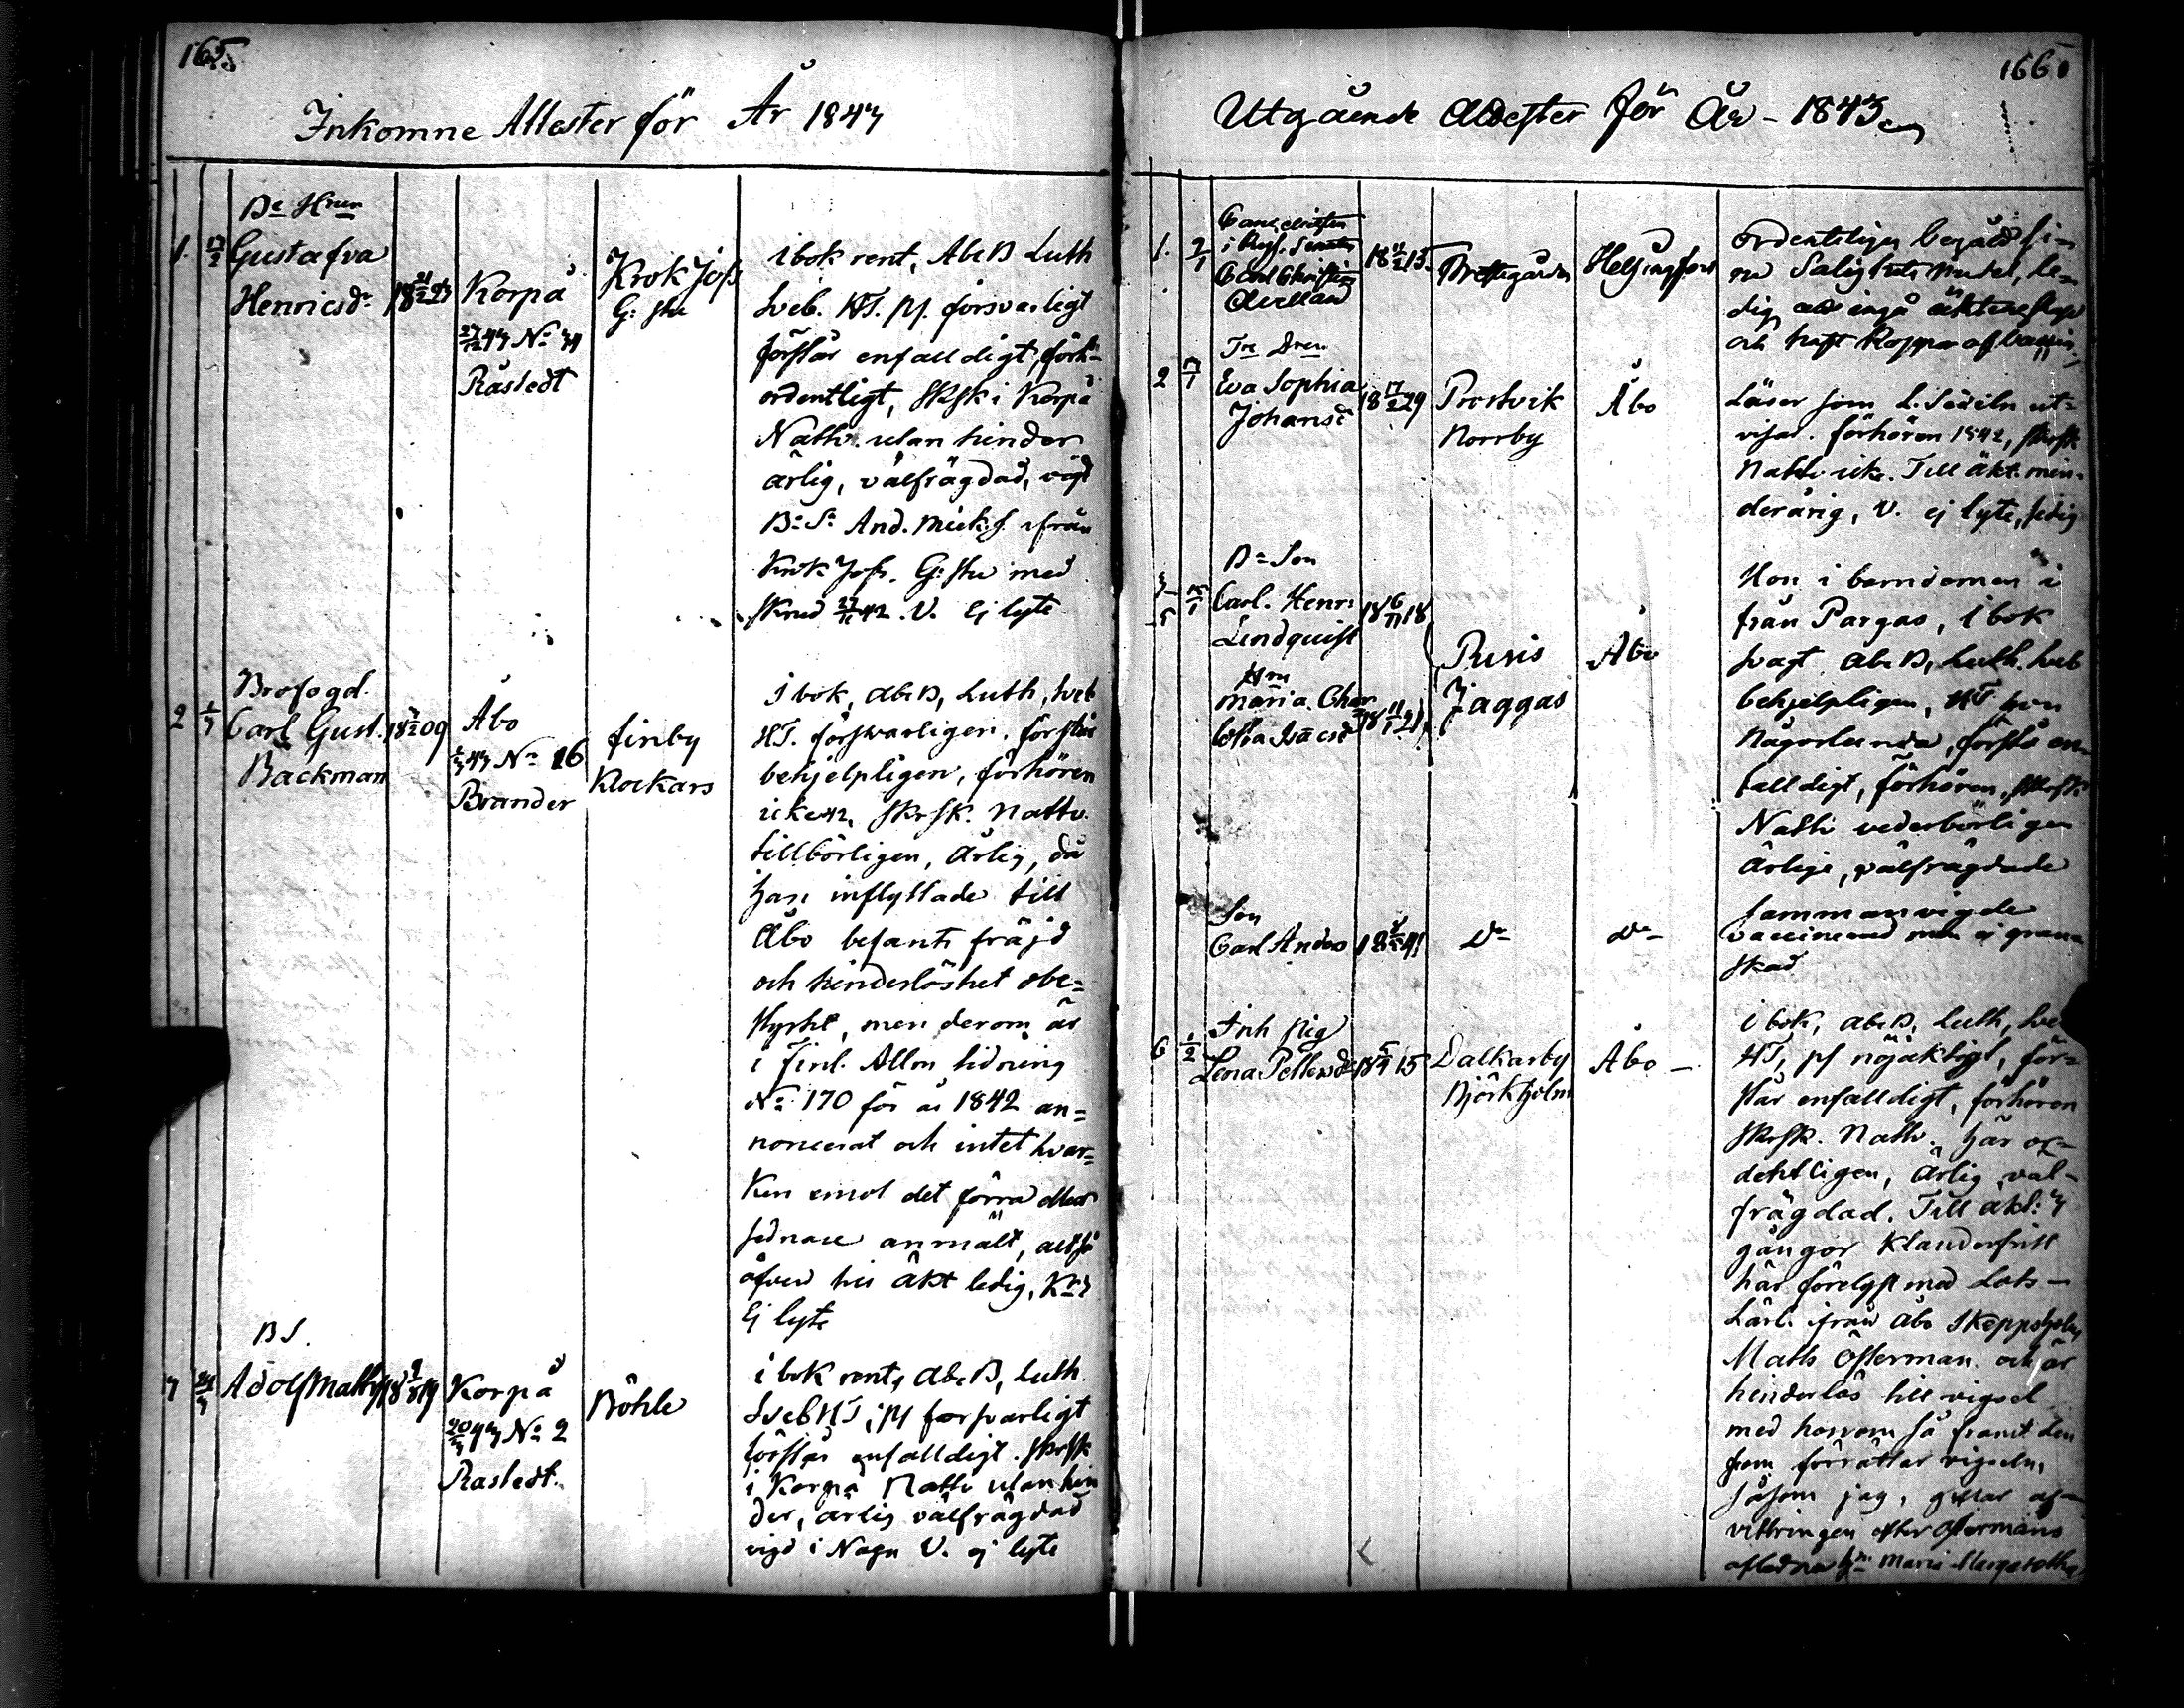 165
Inkomne Attester för År 1843
Be Hrun
1. 17/2 Gustafva
Henricsdr
18 21/2 23
Korpå
27/12 43 No 34
Råstedt
Krok Jofs
G: stu
i bok rent, AbcB Luth
Sveb. HT. pf. försvarligt
förstår enfalldigt, förh-
ordentligt, Skrsk i Korpå
Nattv. utan hinder
ärlig, välfrägdad, vigd
Be Sn And. Mick.s. ifrån
Krok Jofs. G: stu med
skrud 27/11 42. V. Ej lyte
2 1/3
Brofogd.
Carl Gust.
Backman
18 7/2 09
Åbo
1/3 43 No 26
Brander
finby
Klockars
I bok, abcB, Luth, Sveb
HT. försvarligen, förstår
behjelpligen, förhören
icke 42, Skrsk. Nattv.
tillbörligen, Ärlig, då
han inflyttade till
Åbo befants fräjd
och hinderlöshet obe=
styrkt, men derom är
i Finl. Allm tidning
No 170 för år 1842 an=
noncerat och intet hvar=
ken emot det förra eller
sednare anmält, altså
äfven till äkt ledig,
Ej lyte
BS.
3 24/3 Adolf Matts
18 9/8 19
Korpå
20/3 43 No 2
Råstedt.
Böhle
i bok rent, AbcB, Luth.
Sveb HT, pf försvarligt
förstår enfalldigt. Skrsk
i Korpå Nattv utan hin
der, ärlig välfrägdad
vigd i Nagu V. ej lyte
1661
Utgående Attester för År - 1843
1. 2/1
Cancelristen
i Kejs. Senaten
Carl Christian
18 11/2 13
Prestegården
Helsingfors
Ordenteligen begådt si-
na Salighets medel, le-
dig att ingå äktenskap
och haft Koppor af vaccin
2 17/1
Tre Dren
Eva Sophia
Johansdr
18 17/2 29
Prostvik
Norrby
Åbo
Läser som L. Sedeln ut=
visar. förhören 1842, Skrsk
Nattv icke. Till äkt. min-
derårig, V. ej lyte, sedig
3-5 18/1
Be Son
Carl. Henr:
Lindquist
18 6/11 18
Hru
Maria Char
lotta Isacsdr
18 11/1 21
Pusis
Jaggas
Åbo
Hon i barndomen i
från Pargas, i bok
svagt AbcB, Luth. Sveb
behjelpligen, HT hon
någorlunda, förstå en-
falldigt, förhören, Skrsk
Nattv vederbörligen
Ärlige, välfrägdade
Sammanvigde
Son
Carl Anders
18 41
Do
Do
vaccinerad men ej gran
skad
6 1/2
Inh pig
Lena Pettersdr
18 5/4 15
Dalkarby
Björkholm
Åbo -
i bok, abcB, Luth, Sve
HT, pf nöjaktigt, för=
står enfalldigt, förhören
Skrsk. Nattv. här or-
dentligen, Ärlig väl-
frägdad. Till äkt: 3
gångor klanderfritt
här förelyst med Lots-
Lärl. ifrån Åbo
Matts Österman och är
hinderlös till vigsel
med honom så framt den
som förrättar vigseln,
såsom jag, gillar af-
vittringen efter Östermans
aflidna Maria Margaretha